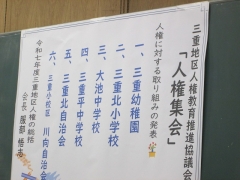 三重地区人権教育推進協議会
「人権集会」
人権に対する取り組みの発表
一、三重幼稚園
二、三重北小学校
三、大池中学校
四、三重平中学校
五、三重北自治会
六、三重小校区 川向自治会
令和七年度三重地区人権の総括
会長 服部 悟治